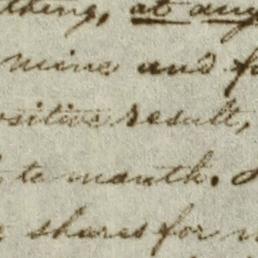 thing, at any
mine and f
ositive result,
to mouth.
shares for